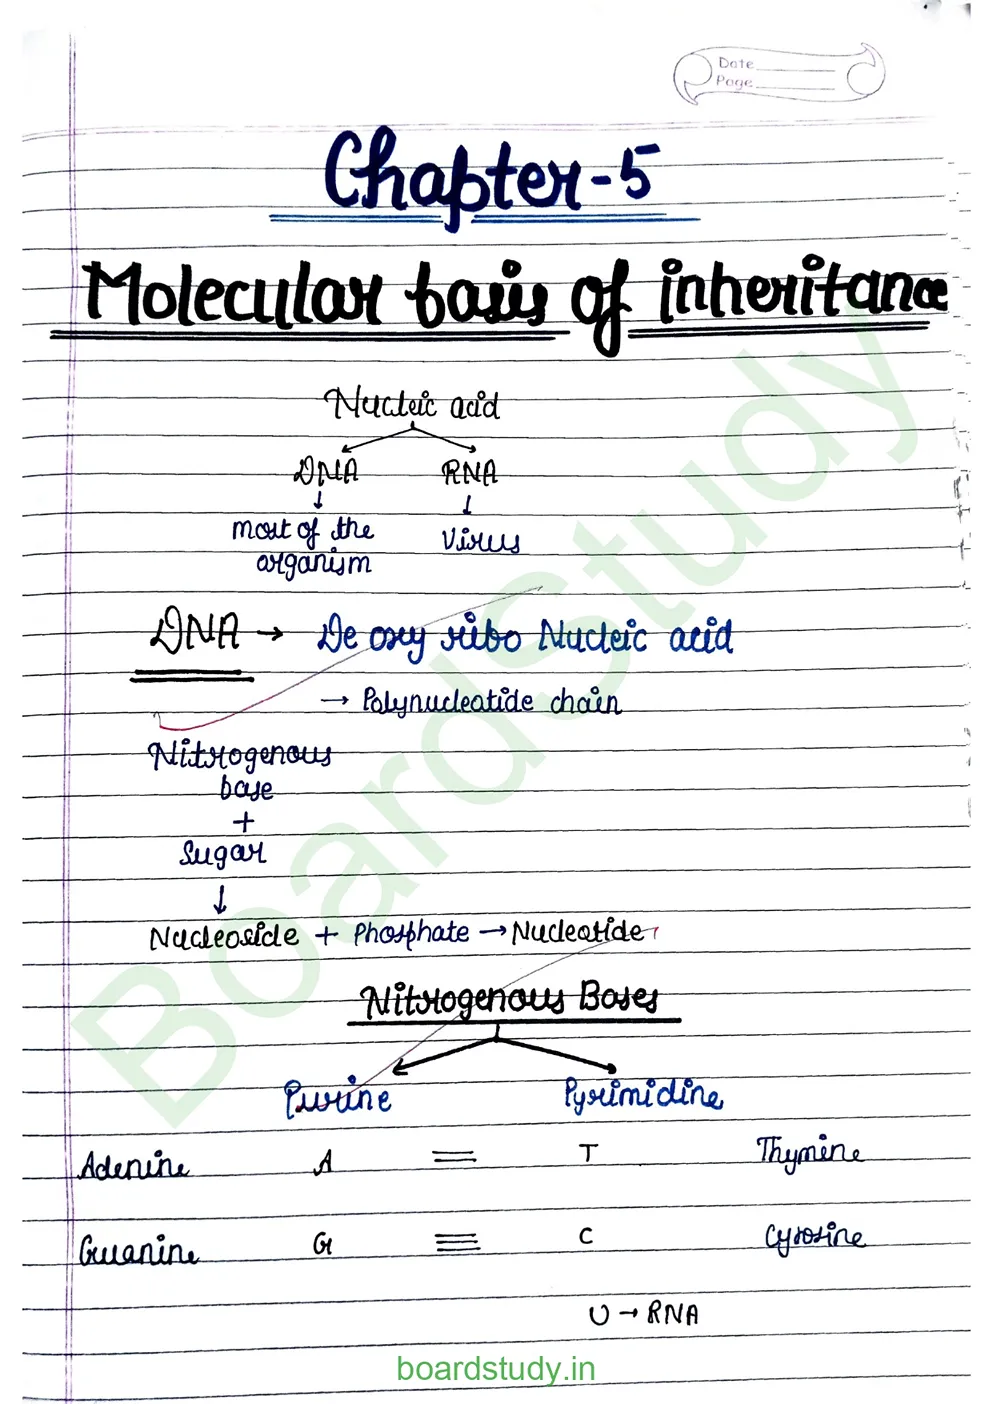 Date
Page
Chapter-5
Molecular basis of inheritance
Nucleic acid
DNA RNA
↓ ↓
most of the Virus
organism
DNA → De oxy ribo Nucleic acid
→ Polynucleotide chain
Nitrogenous
base
+
Sugar
↓
Nucleoside + Phosphate → Nucleotide
Nitrogenous Bases
Purine Pyrimidine
Adenine A = T Thymine
Guanine G ≡ C Cytosine
U → RNA
BoardStudy
boardstudy.in